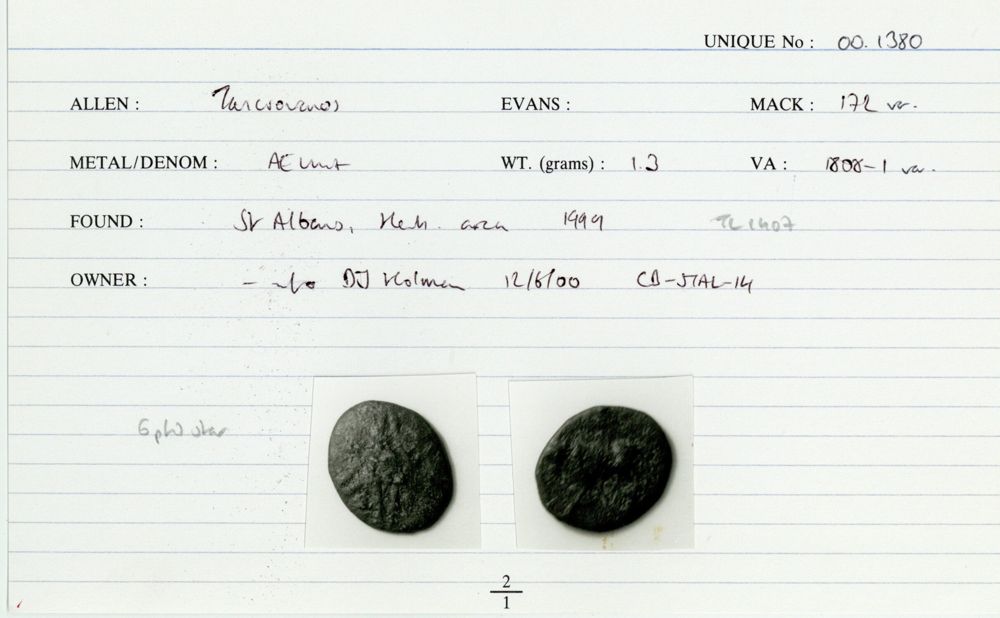 UNIQUE No : 00.1380
ALLEN : Tasciovanos EVANS : MACK : 172 var.
METAL/DENOM : AE unit WT. (grams) : 1.3 VA : 1808-1 var.
FOUND : St Albans, Herts. area 1999 TL 1407
OWNER : - info DJ Holman 12/6/00 CB-STAL-14
6 ptd star
2
1